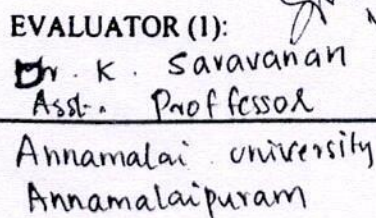 EVALUATOR (1):
Dr. K. Saravanan
Asst. Proffessor
Annamalai university
Annamalaipuram